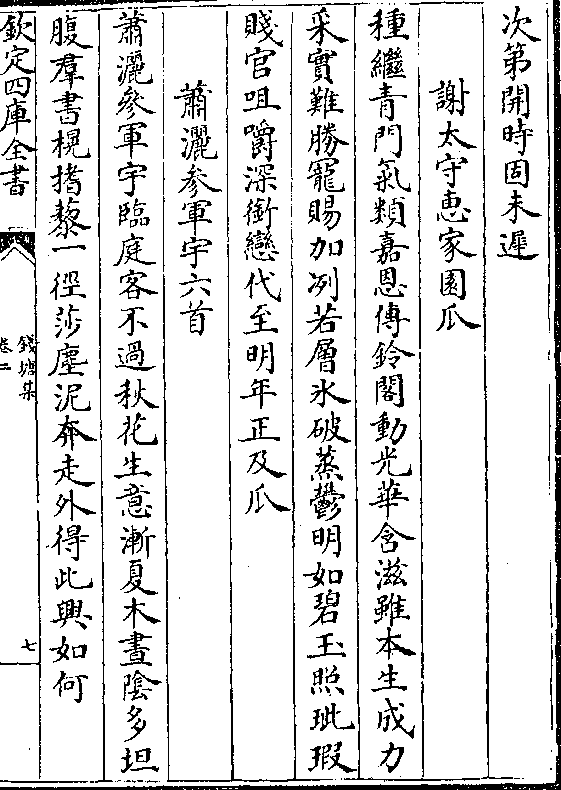 次第開時固未遲
謝太守惠家園瓜
種繼青門氣類嘉恩傳鈴閣動光華含滋雖本生成力
采實難勝寵賜加冽若層氷破蒸鬱明如碧玉照玼瑕
賤官咀嚼深銜戀代至明年正及瓜
蕭灑參軍宇六首
蕭灑參軍宇臨庭客不過秋花生意漸夏木晝陰多坦
腹羣書榥揩藜一徑莎塵泥奔走外得此興如何
欽定四庫全書
錢塘集
卷二
七